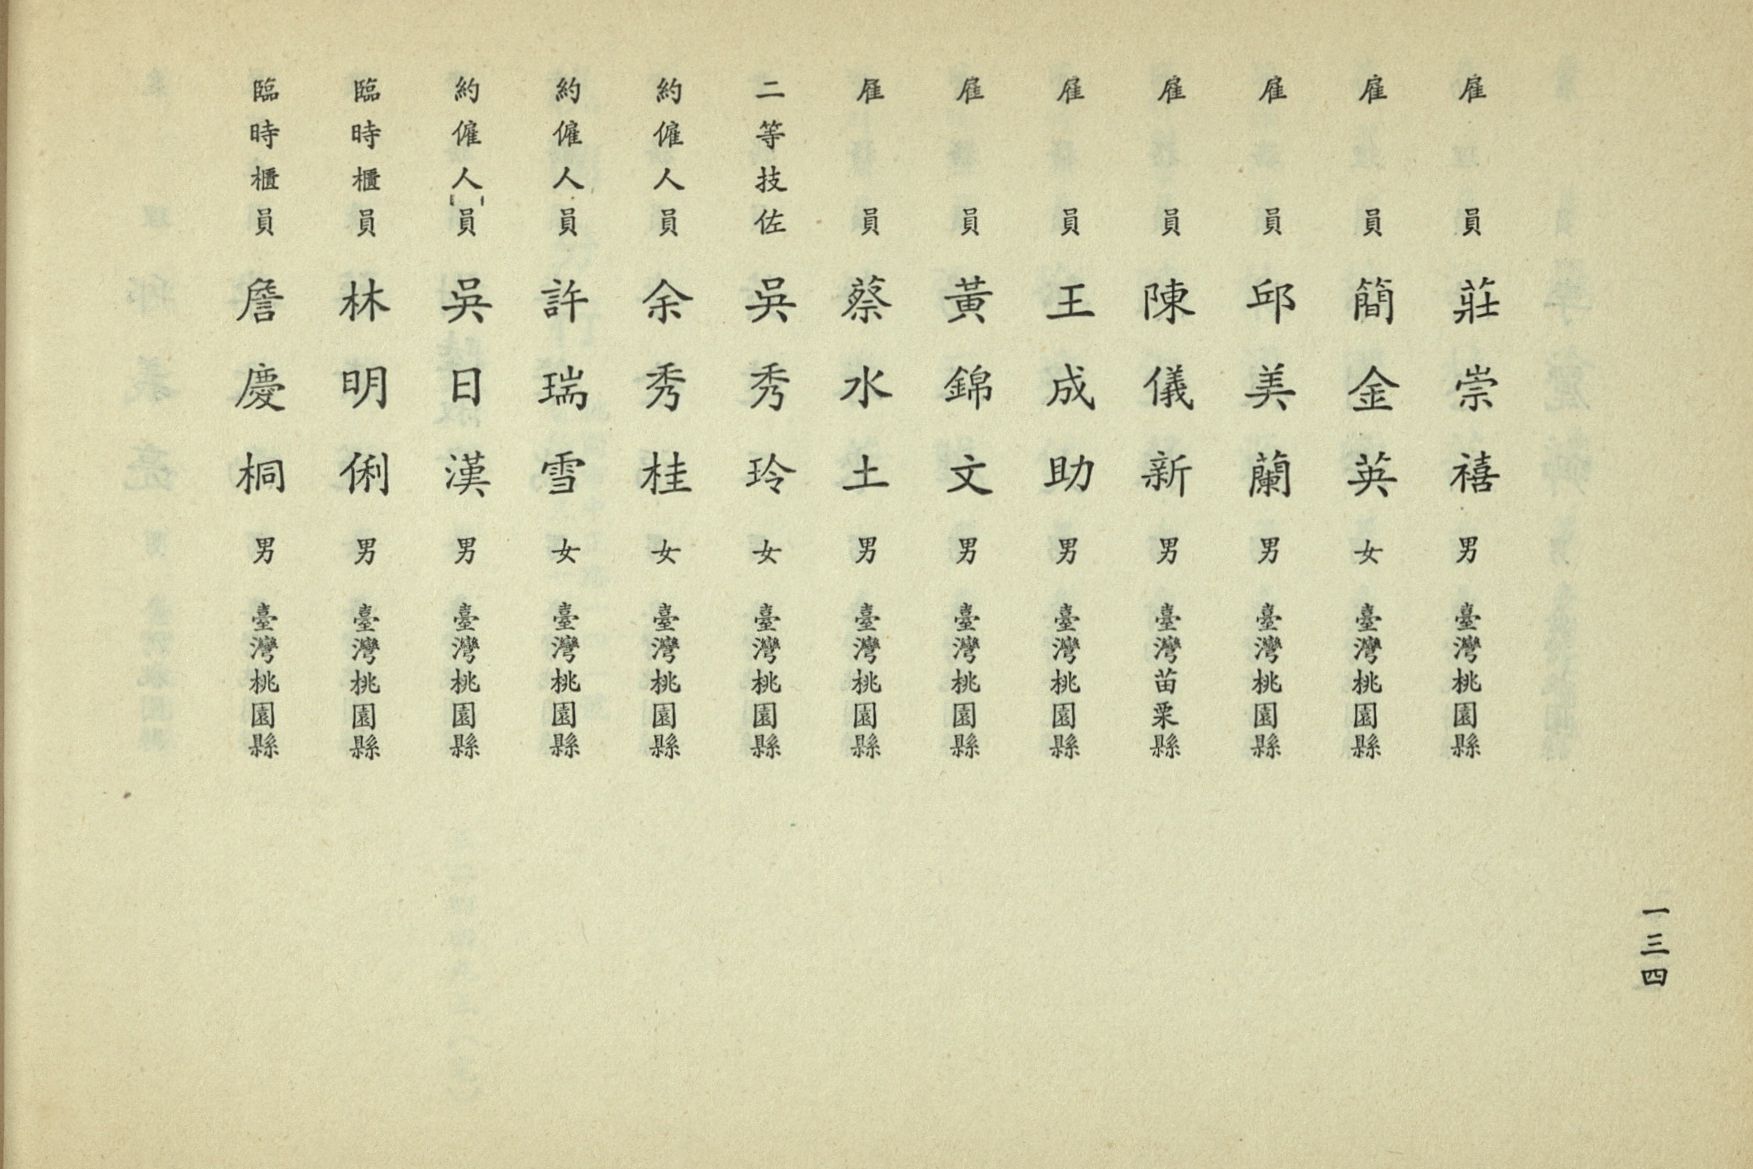 雇員 莊崇禧 男 臺灣桃園縣
雇員 簡金英 女 臺灣桃園縣
雇員 邱美蘭 男 臺灣桃園縣
雇員 陳儀新 男 臺灣苗栗縣
雇員 王成助 男 臺灣桃園縣
雇員 黃錦文 男 臺灣桃園縣
雇員 蔡水土 男 臺灣桃園縣
二等技佐 吳秀玲 女 臺灣桃園縣
約僱人員 余秀桂 女 臺灣桃園縣
約僱人員 許瑞雪 女 臺灣桃園縣
約僱人員 吳日漢 男 臺灣桃園縣
臨時櫃員 林明俐 男 臺灣桃園縣
臨時櫃員 詹慶桐 男 臺灣桃園縣
一三四